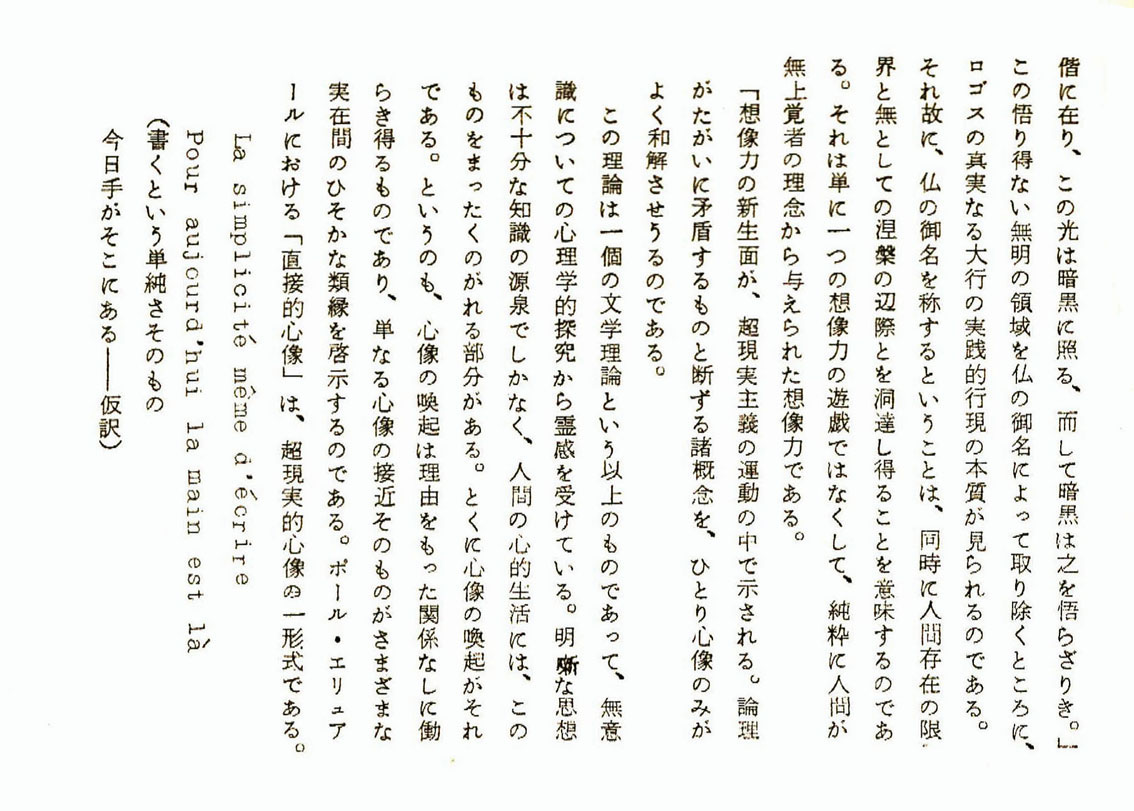 偕に在り、この光は暗黒に照る、而して暗黒は之を悟らざりき。」
この悟り得ない無明の領域を仏の御名によって取り除くところに、
ロゴスの真実なる大行の実践的行現の本質が見られるのである。
それ故に、仏の御名を称するということは、同時に人間存在の限
界と無としての涅槃の辺際とを洞達し得ることを意味するのであ
る。それは単に一つの想像力の遊戯ではなくして、純粋に人間が
無上覚者の理念から与えられた想像力である。
「想像力の新生面が、超現実主義の運動の中で示される。論理
がたがいに矛盾するものと断ずる諸概念を、ひとり心像のみが
よく和解させうるのである。
この理論は一個の文学理論という以上のものであって、無意
識についての心理学的探究から霊感を受けている。明晰な思想
は不十分な知識の源泉でしかなく、人間の心的生活には、この
ものをまったくのがれる部分がある。とくに心像の喚起がそれ
である。というのも、心像の喚起は理由をもった関係なしに働
らき得るものであり、単なる心像の接近そのものがさまざまな
実在間のひそかな類縁を啓示するのである。ポール・エリュア
ールにおける「直接的心像」は、超現実的心像の一形式である。
La simplicité même d'écrire
Pour aujourd'hui la main est là
(書くという単純さそのもの
今日手がそこにある――仮訳)